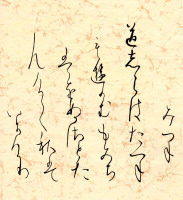 みつね
道志らはたつね
も遊かむもみち
はをぬさとた
むけて秋は
いにけり